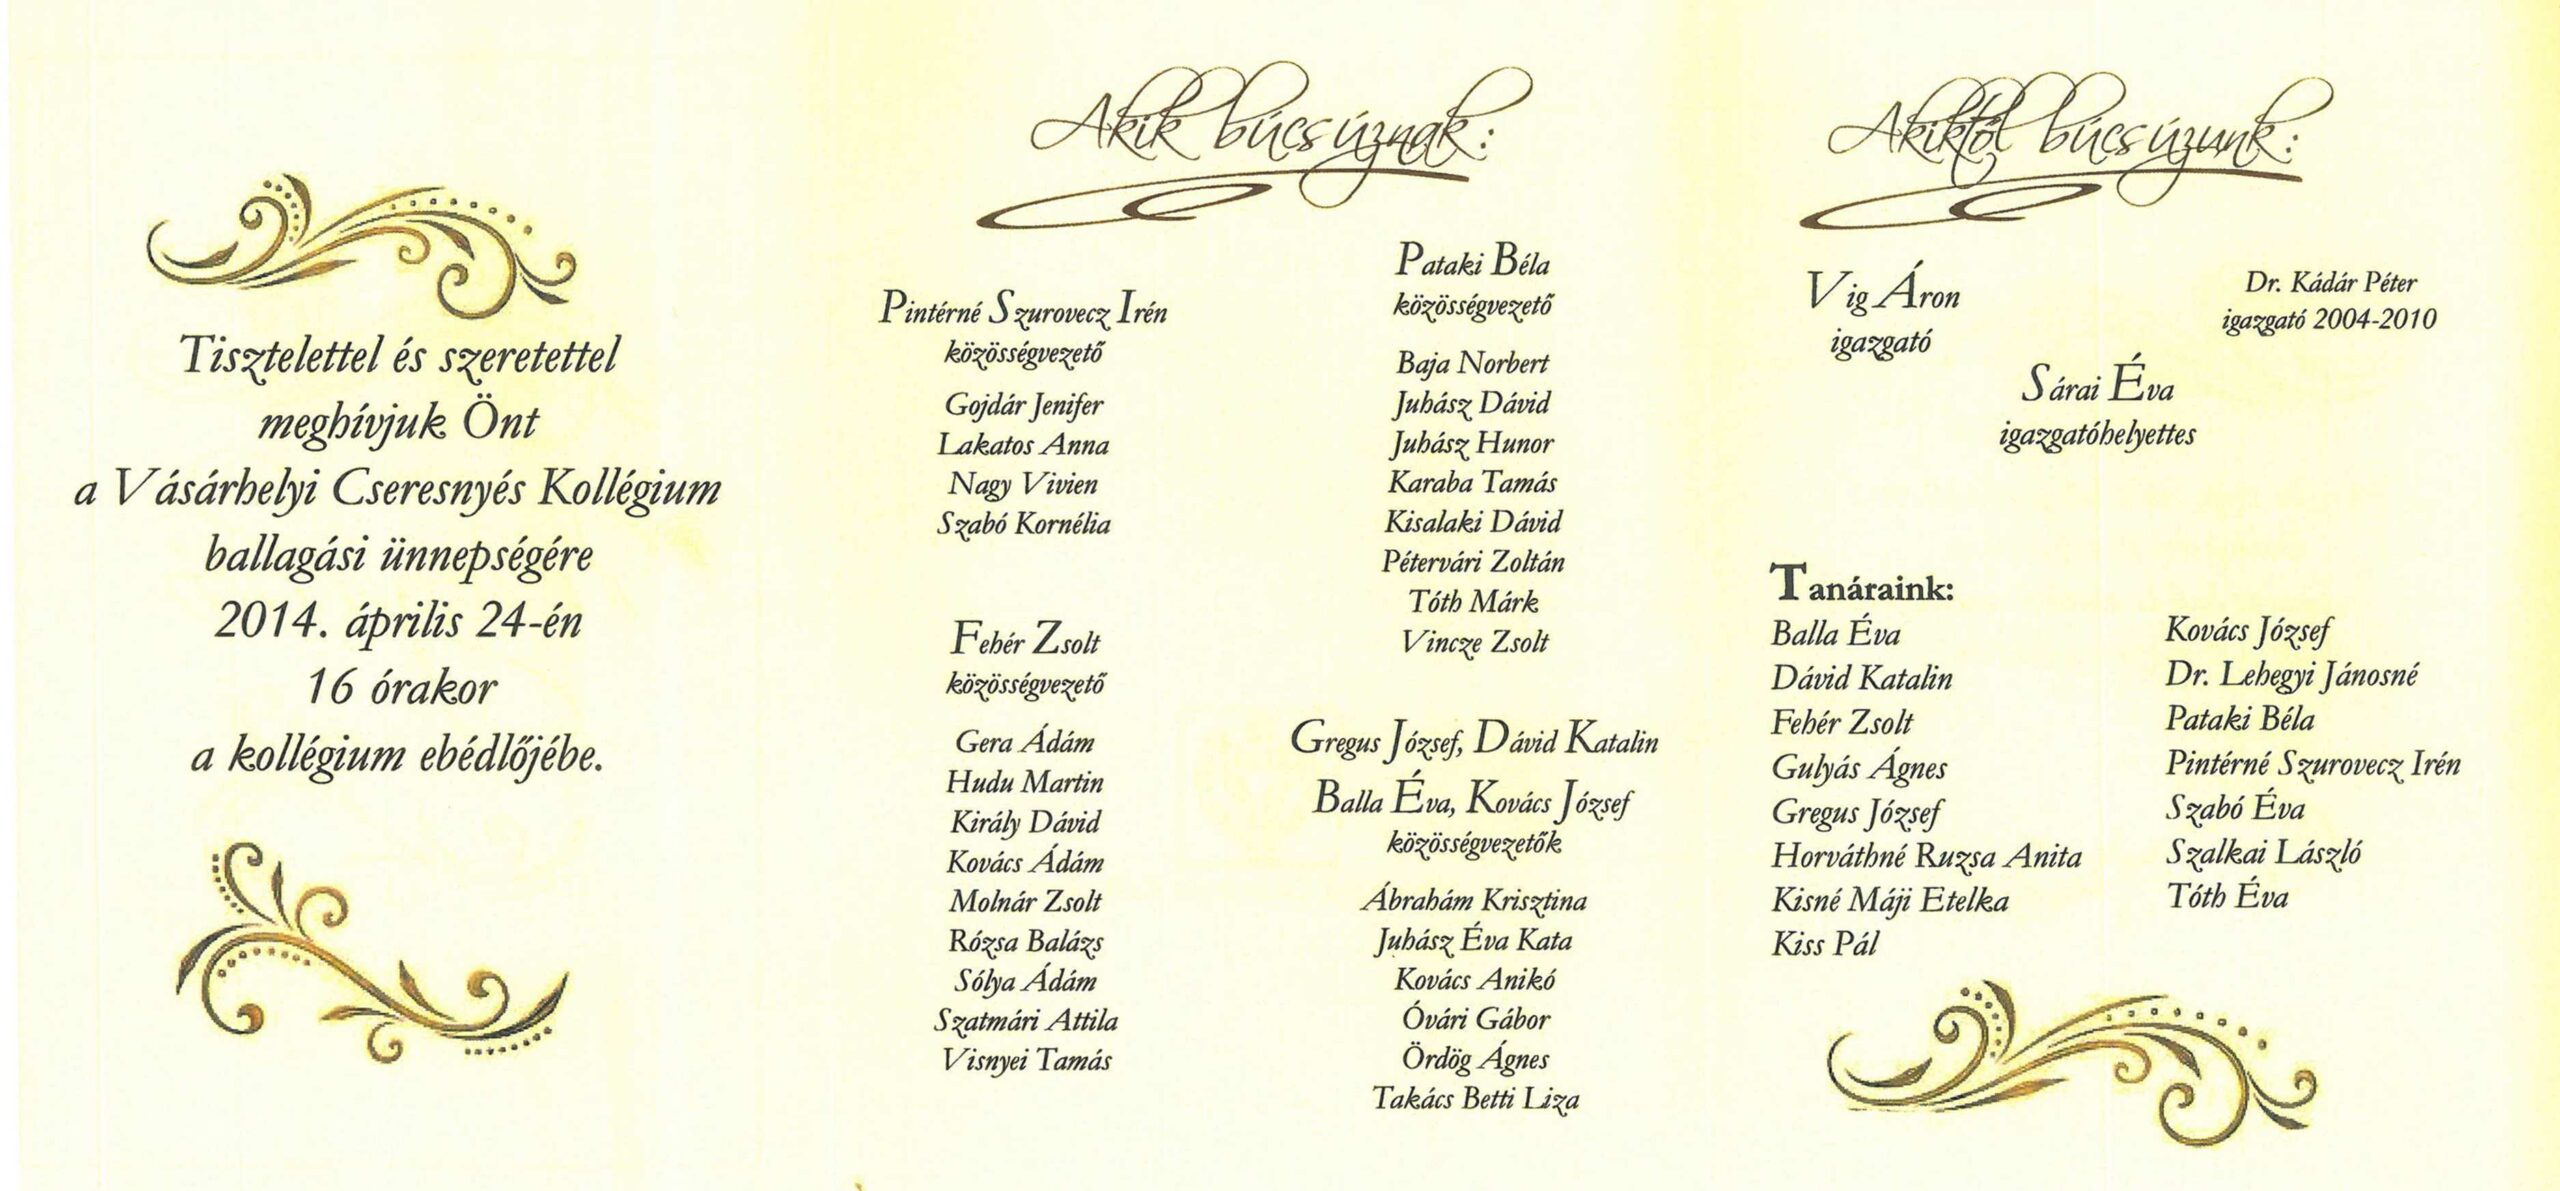 Tisztelettel és szeretettel
meghívjuk Önt
a Vásárhelyi Cseresnyés Kollégium
ballagási ünnepségére
2014. április 24-én
16 órakor
a kollégium ebédlőjébe.
Akik búcsúznak:
Pintérné Szurovecz Irén
közösségvezető
Gojdár Jenifer
Lakatos Anna
Nagy Vivien
Szabó Kornélia
Fehér Zsolt
közösségvezető
Gera Ádám
Hudu Martin
Király Dávid
Kovács Ádám
Molnár Zsolt
Rózsa Balázs
Sólya Ádám
Szatmári Attila
Visnyei Tamás
Pataki Béla
közösségvezető
Baja Norbert
Juhász Dávid
Juhász Hunor
Karaba Tamás
Kisalaki Dávid
Pétervári Zoltán
Tóth Márk
Vincze Zsolt
Gregus József, Dávid Katalin
Balla Éva, Kovács József
közösségvezetők
Ábrahám Krisztina
Juhász Éva Kata
Kovács Anikó
Óvári Gábor
Ördög Ágnes
Takács Betti Liza
Akiktől búcsúzunk:
Vig Áron
igazgató
Dr. Kádár Péter
igazgató 2004-2010
Sárai Éva
igazgatóhelyettes
Tanáraink:
Balla Éva
Dávid Katalin
Fehér Zsolt
Gulyás Ágnes
Gregus József
Horváthné Ruzsa Anita
Kisné Máji Etelka
Kiss Pál
Kovács József
Dr. Lehegyi Jánosné
Pataki Béla
Pintérné Szurovecz Irén
Szabó Éva
Szalkai László
Tóth Éva